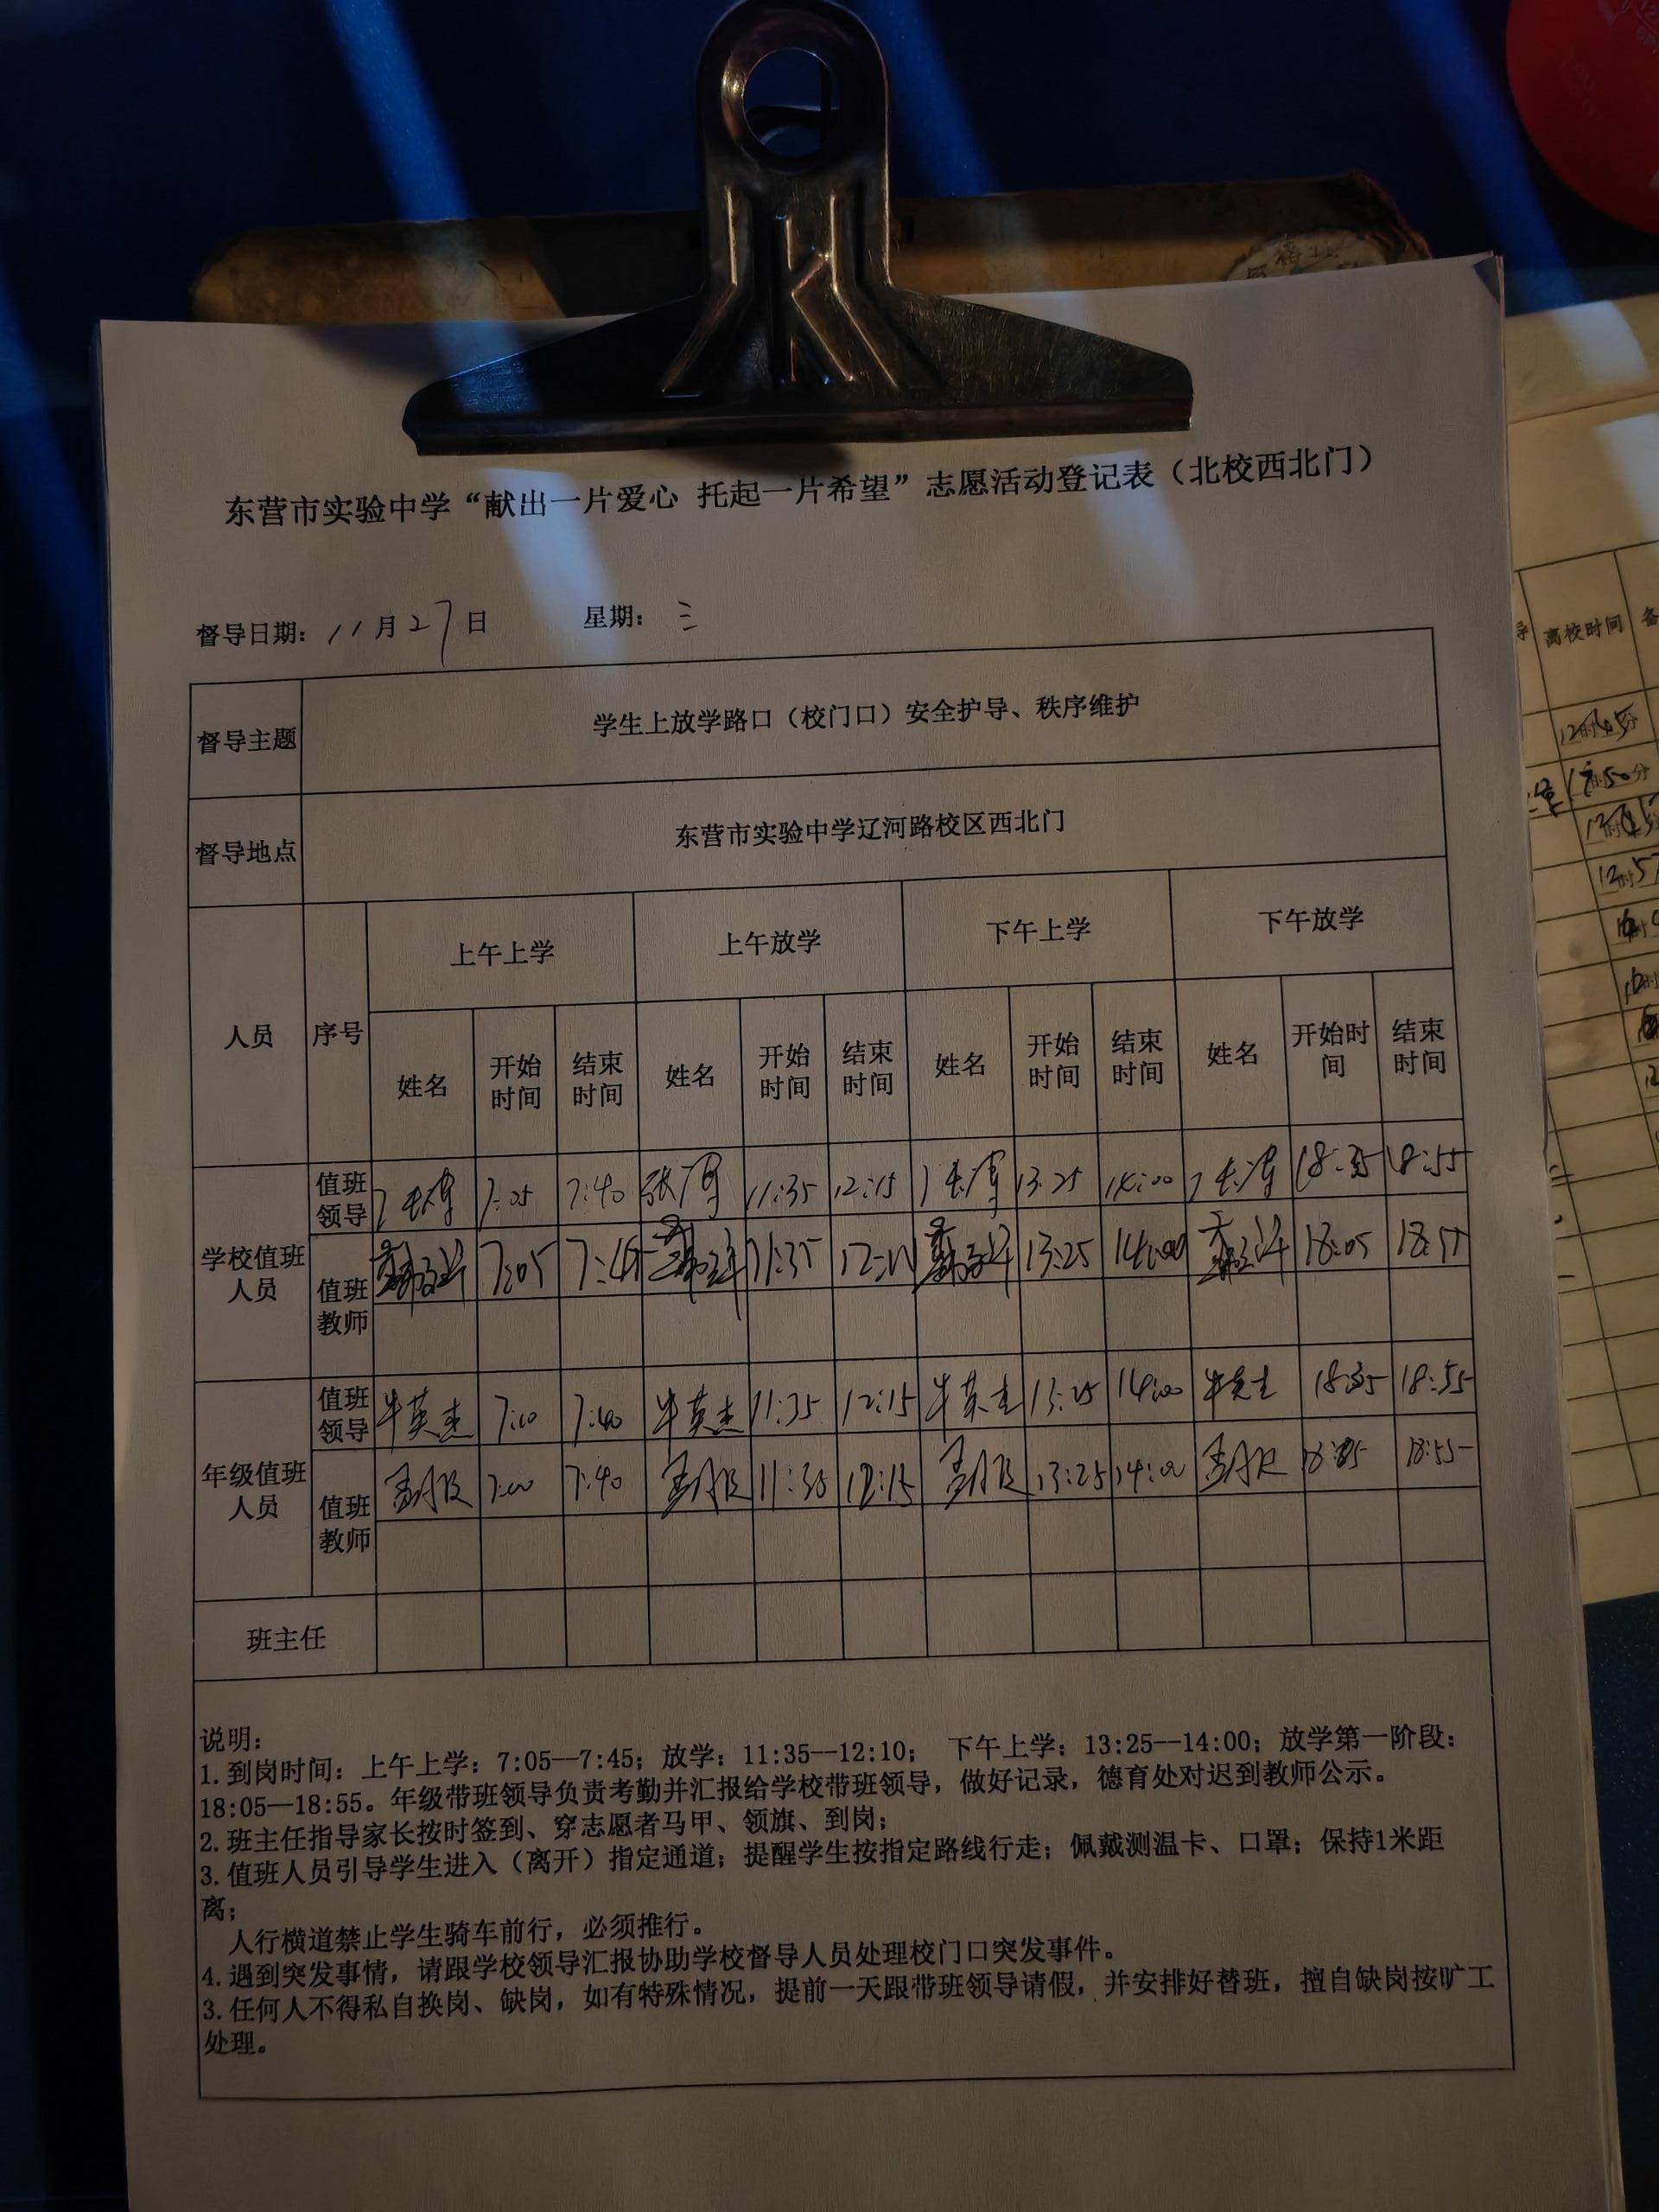 东营市实验中学“献出一片爱心 托起一片希望”志愿活动登记表（北校西北门）
督导日期：11月27日 星期：三
督导主题 学生上放学路口（校门口）安全护导、秩序维护
督导地点 东营市实验中学辽河路校区西北门
人员 序号 上午上学 上午放学 下午上学 下午放学
姓名 开始时间 结束时间 姓名 开始时间 结束时间 姓名 开始时间 结束时间 姓名 开始时间 结束时间
学校值班人员
值班领导 7:05 7:40 11:35 12:15 13:25 14:00 18:55
值班教师 7:05 11:35 13:25 14:00 18:05
年级值班人员
值班领导 牛英杰 7:00 7:40 牛英杰 11:35 12:15 牛英杰 13:25 14:00 牛英杰 18:55
值班教师 7:00 7:40 12:15 13:25 14:00 18:55
班主任
说明：
1.到岗时间：上午上学：7:05—7:45；放学：11:35—12:10； 下午上学：13:25—14:00；放学第一阶段：
18:05—18:55。年级带班领导负责考勤并汇报给学校带班领导，做好记录，德育处对迟到教师公示。
2.班主任指导家长按时签到、穿志愿者马甲、领旗、到岗；
3.值班人员引导学生进入（离开）指定通道；提醒学生按指定路线行走；佩戴测温卡、口罩；保持1米距
离；
人行横道禁止学生骑车前行，必须推行。
4.遇到突发事情，请跟学校领导汇报协助学校督导人员处理校门口突发事件。
3.任何人不得私自换岗、缺岗，如有特殊情况，提前一天跟带班领导请假，并安排好替班，擅自缺岗按旷工
处理。
导 离校时间 备